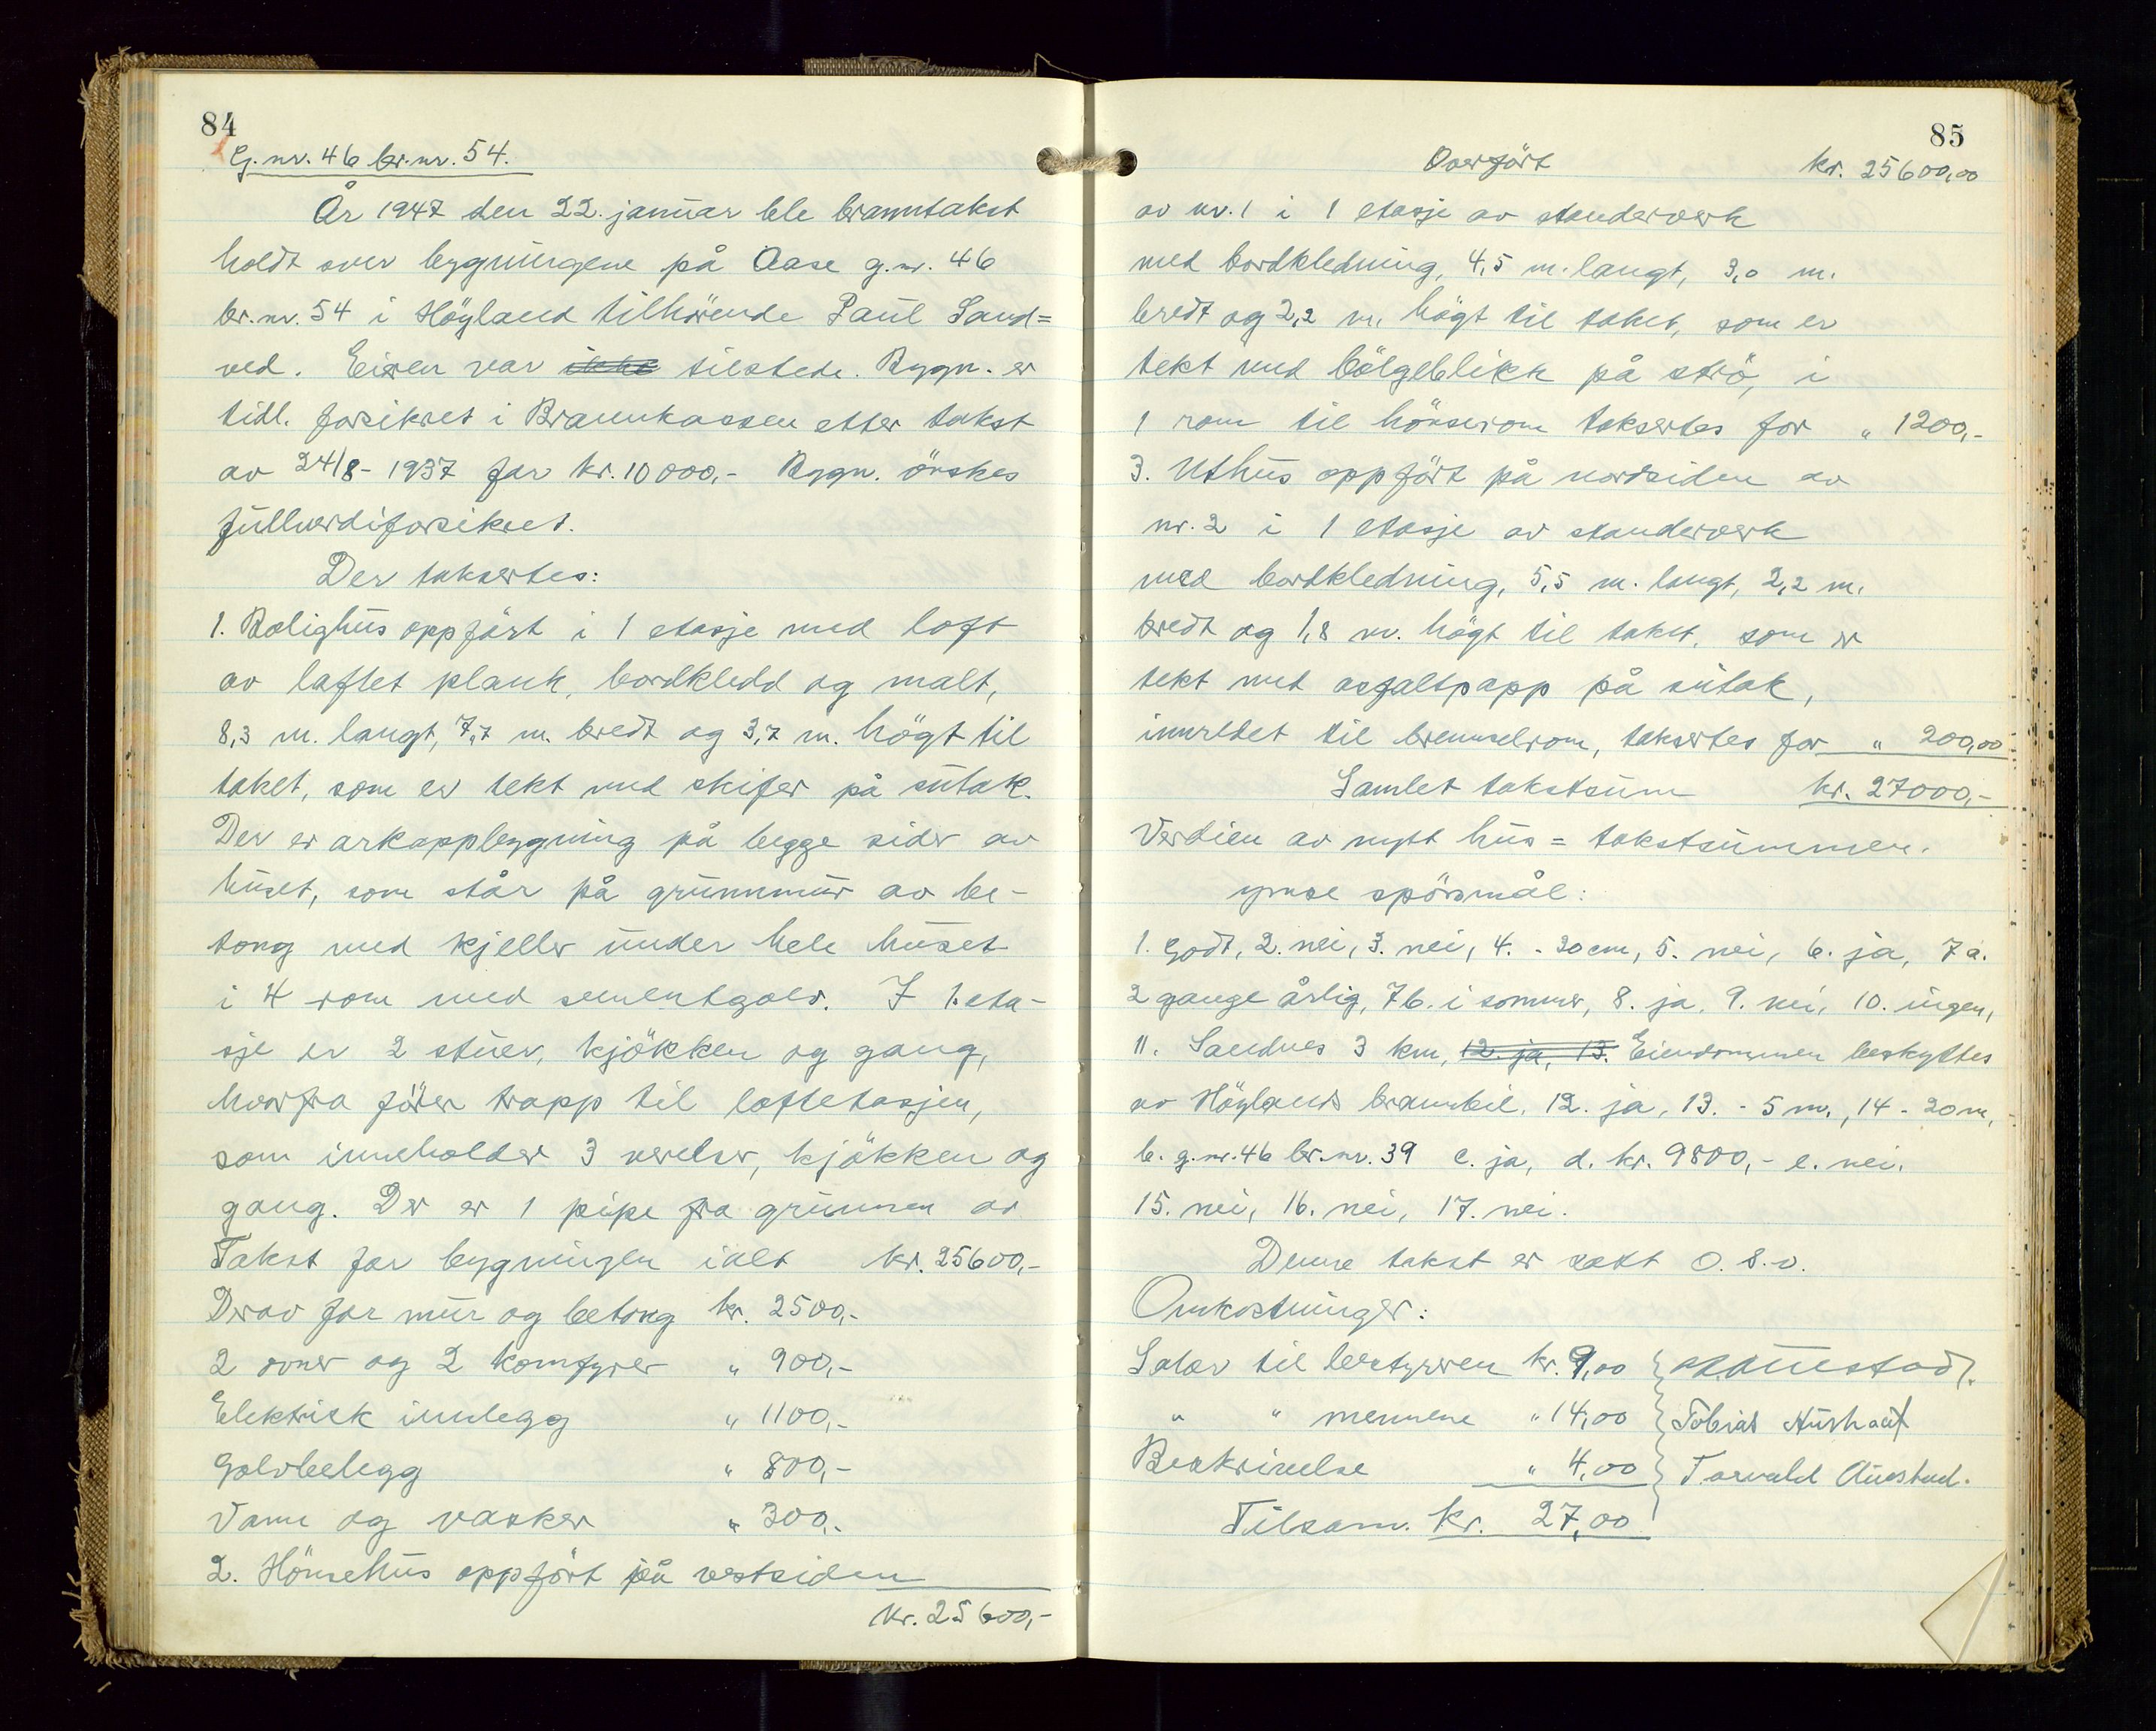 84
G.nr. 46 br.nr. 54.
År 1947 den 22. januar ble branntakst
holdt over bygningene på Aase g.nr. 46
br.nr. 54 i Höyland tilhörende Paul Sand=
ved. Eieren var ikke tilstede. Bygn. er
tidl. forsikret i Brannkassen etter takst
av 24/8 - 1937 for kr. 10 000,- Bygn. önskes
fullverdiforsikret.
Der taksertes:
1. Bolighus oppfört i 1 etasje med loft
av laftet plank, bordkledd og malt,
8,3 m. langt, 7,7 m. bredt og 3,7 m. högt til
taket, som er tekt med skifer på sutak.
Der er arkoppbygning på begge sider av
huset, som står på grunnmur av be-
tong med kjeller under hele huset
i 4 rom med sementgolv. I 1. eta-
sje er 2 stuer, kjökken og gang,
hvorfra förer trapp til loftetasjen,
som inneholder 3 verelser, kjökken og
gang. Der er 1 pipe fra grunnen av
Takst for bygningen ialt kr. 25600,-
Derav for mur og betong kr. 2500,-
2 ovner og 2 komfyrer " 900,-
Elektrisk innlegg " 1100,-
Golvbelegg " 800,-
Vann og vasker " 300,-
2. Hönsehus oppfört på vestsiden
kr. 25600,-
85
Overfört kr. 25600,00
av nr. 1 i 1 etasje av standerverk
med bordkledning, 4,5 m. langt, 3,0 m.
bredt og 2,2 m. högt til taket, som er
tekt med bölgeblikk på strö, i
1 rom til hönserom takseres for " 1200,-
3. Uthus oppfört på nordsiden av
nr. 2 i 1 etasje av standerverk
med bordkledning, 5,5 m. langt, 2,2 m.
bredt og 1,8 m. högt til taket, som er
tekt med asfaltpapp på sutak,
innredet til brenselrom, takseres for " 200,00
Samlet takstsum kr. 27000,-
Verdien av nytt hus = takstsummen.
Ymse spörsmål:
1. Godt, 2. nei, 3. nei, 4. - 20 cm, 5. nei, 6. ja, 7 a.
2 gange årlig, 7 b. i sommer, 8. ja, 9. nei, 10. ingen,
11. Sandnes 3 km, 12. ja, 13. Eiendommen beskyttes
av Höylands brannbil, 12. ja, 13. - 5 m., 14 - 20 m,
b. g.nr. 46 br.nr. 39 c. ja, d. kr. 9800,- e. nei.
15. nei, 16. nei, 17. nei.
Denne takst er satt O. s. v.
Omkostninger:
Salær til bestyreren kr. 9,00
" " mennene " 14,00 Tobias
Beskrivelse " 4,00 Torvald Austad.
Tilsam. kr. 27,00